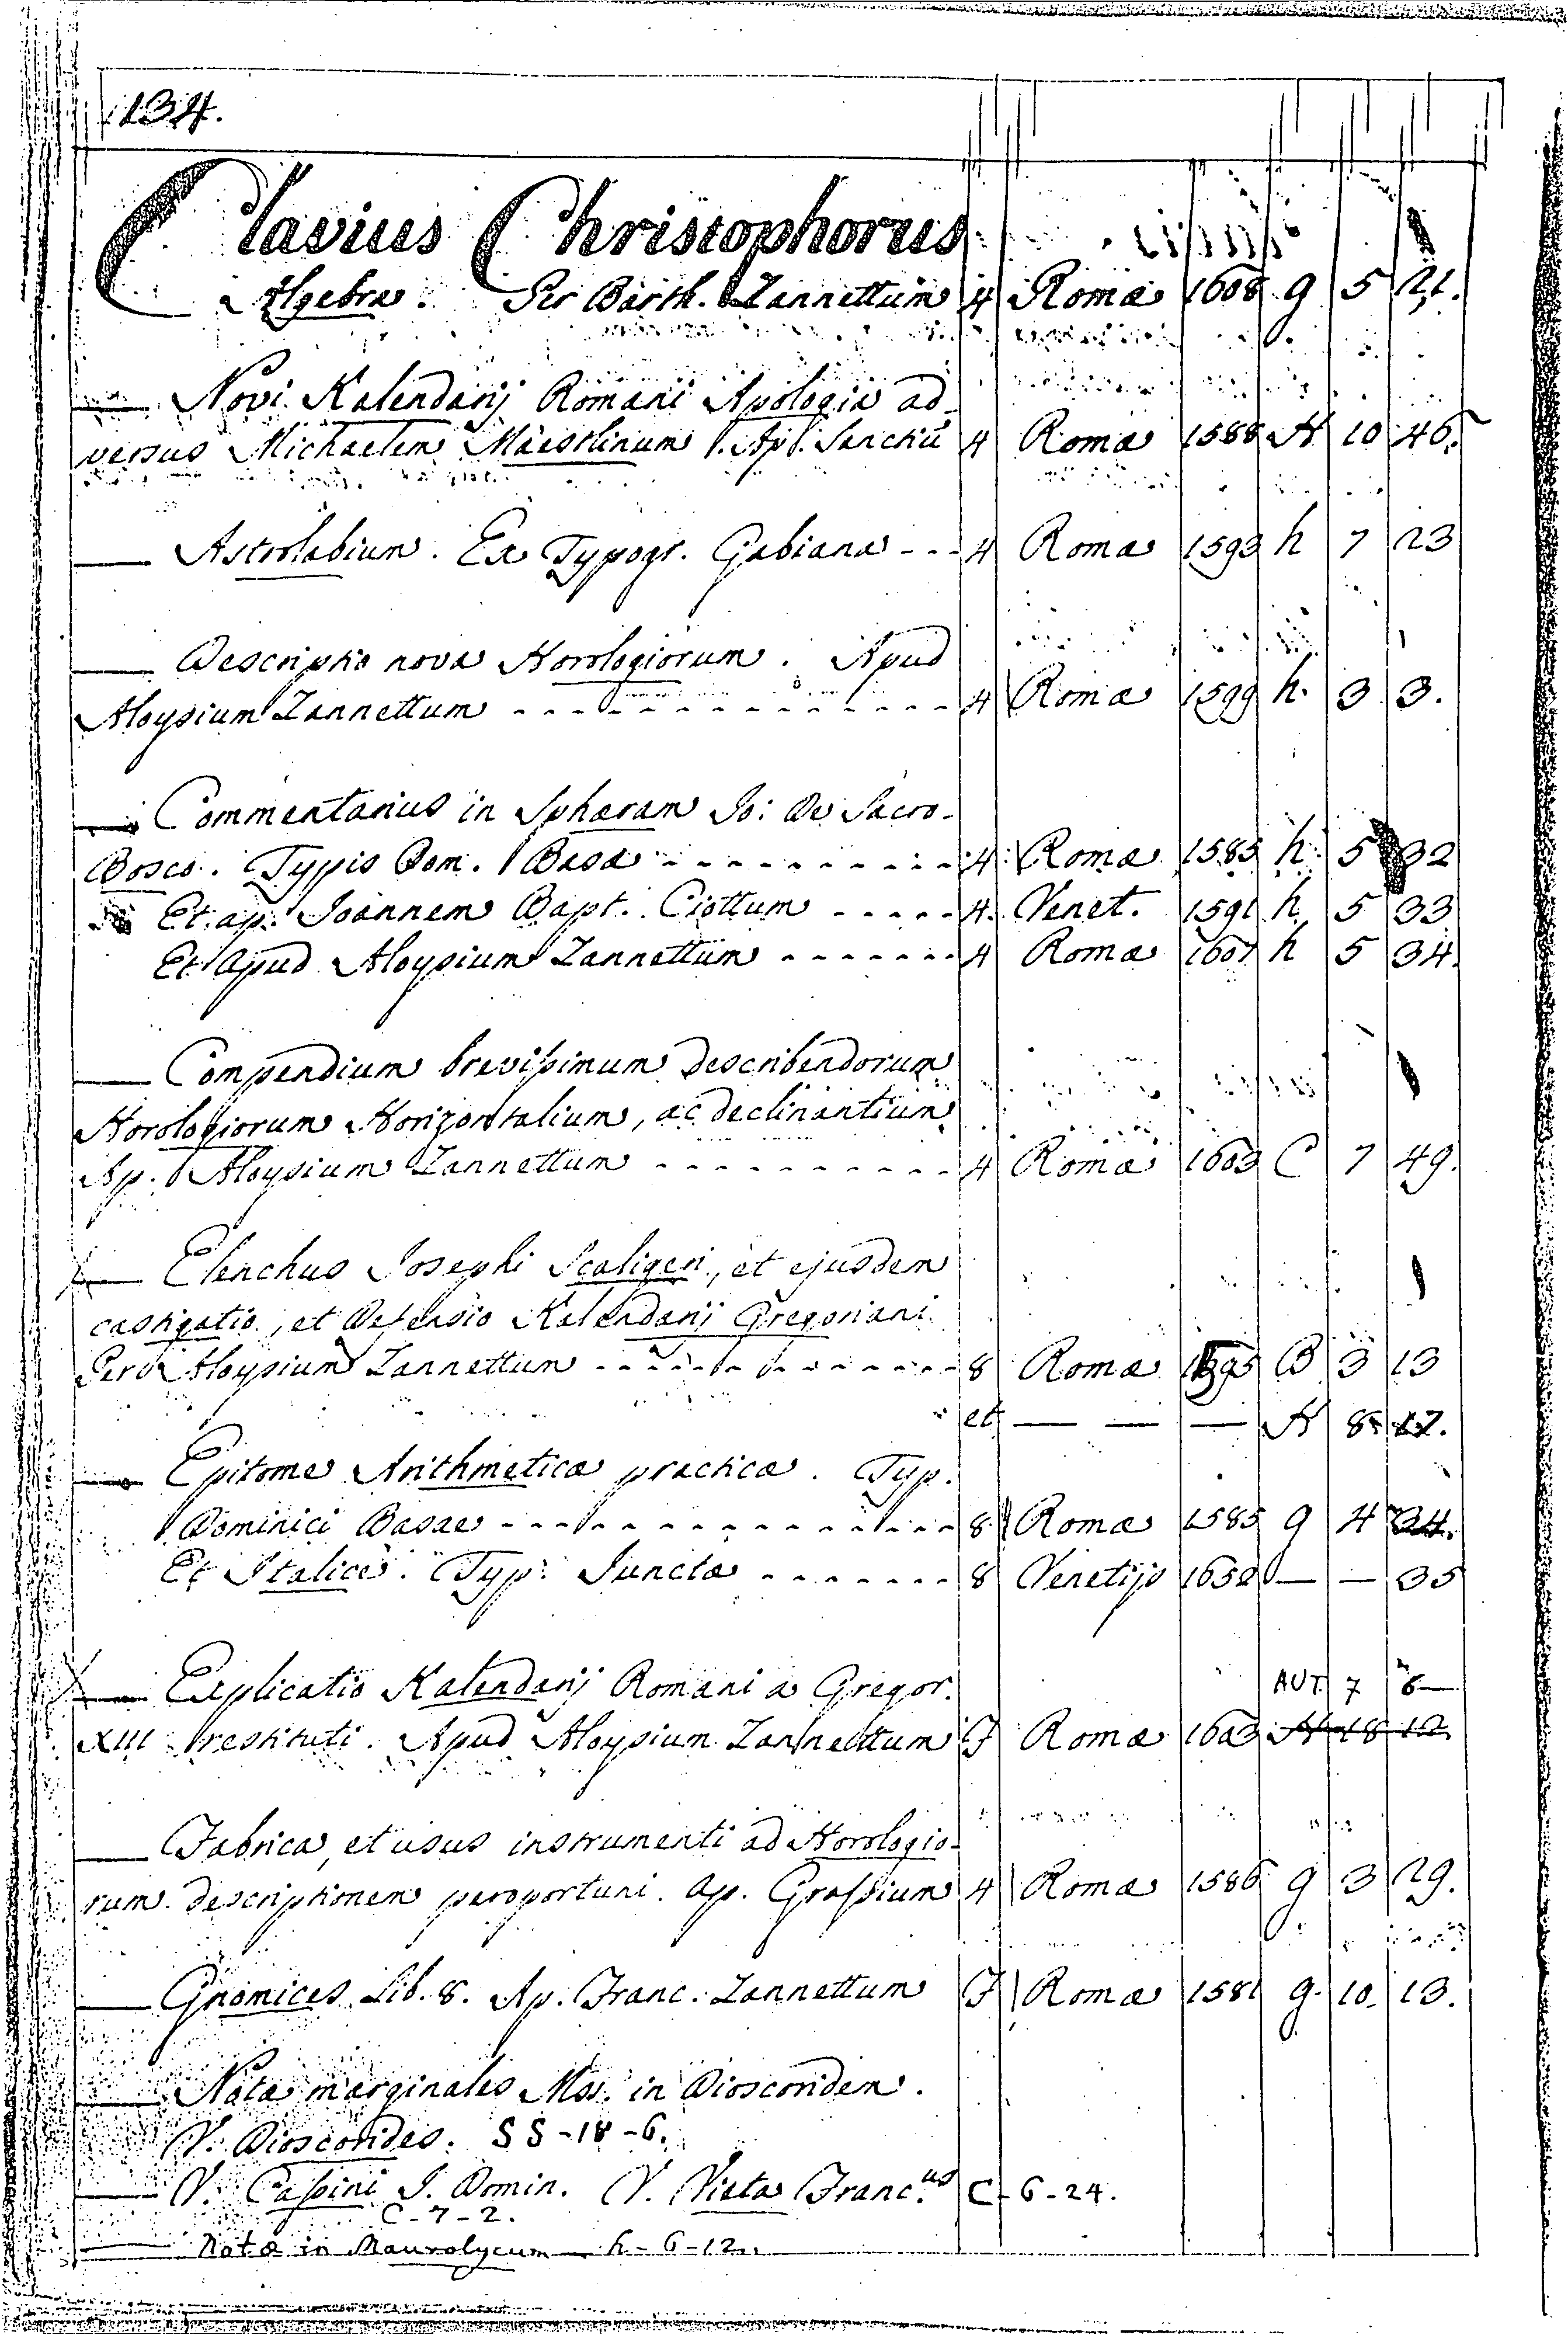 134.
Clavius Christophorus
Algebra. Per Barth. Zannettum 4 Romæ 1608 g 5 21.
— Novi Kalendarij Romani Apologia ad-
versus Michaelem Mæstlinum. Ap. Sanctiū 4 Romæ 1588 H 10 46.
— Astrolabium. Ex Typogr. Gabiana --- 4 Romæ 1593 h 7 23
— Descriptio nova Horologiorum. Apud
Aloysium Zannettum --- 4 Romæ 1599 h. 3 3.
— Commentarius in Sphæram Jo: De Sacro-
Bosco. Typis Dom. Basæ --- 4 Romæ 1585 h 5 32
Et ap. Joannem Bapt. Ciottum --- 4. Venet. 1591 h 5 33
Et apud Aloysium Zannettum --- 4 Romæ 1607 h 5 34.
— Compendium brevissimum describendorum
Horologiorum Horizontalium, ac declinantium
Ap. Aloysium Zannettum --- 4 Romæ 1603 C 7 49.
— Elenchus Josephi Scaligeri, et ejusdem
castigatio, et Defensio Kalendarij Gregoriani
Per Aloysium Zannettum --- 8 Romæ 1595 B 3 13
et — — — H 8 17.
— Epitome Arithmeticæ practicæ. Typ.
Dominici Basae --- 8 Romæ 1585 g 4 34.
Et Italicè. Typ. Junctæ --- 8 Venetijs 1652 — — 35
— Explicatio Kalendarij Romani a Gregor. AUT. 7 6—
XIII restituti. Apud Aloysium Zannettum F Romæ 1603 H 18 12.
— Fabrica, et usus instrumenti ad Horologio-
rum descriptionem peropportuni. Ap. Grassium 4 Romæ 1586 g 3 29.
— Gnomices Lib. 8. Ap. Franc. Zannettum F Romæ 1581 g. 10. 13.
— Notæ marginales Mss. in Dioscoridem.
V. Dioscorides. SS-18-6.
— V. Cassini J. Domin. V. Vieta Franc.us C-6-24.
C-7-2.
— Notæ in Maurolycum — h-6-12.